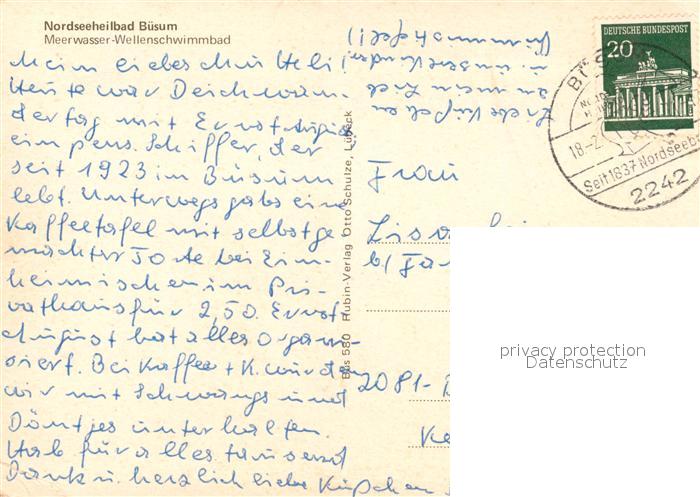 Nordseeheilbad Büsum
Meerwasser-Wellenschwimmbad
Mein liebes Mutteli!
Heute war Deichwan-
dertag mit Ernst August
ein pens. Schiffer, der
seit 1923 in Büsum
lebt. Unterwegs gabs eine
Kaffeetafel mit selbstge
machter Torte bei Ein-
heimischen im Pri-
vathaus für 2,50. Ernst
August hat alles organi-
siert. Bei Kaffee + K. wurden
wir mit Schwungs und
Döntjes unterhalten.
Hab für alles tausend
Dank u. herzlich liebe Küßchen
Liebe Küßchen
u. unsere Kinder
Frau
Lisa
b/ Fa
2081-
DEUTSCHE BUNDESPOST
20
BÜS
18-2
Seit 1837 Nordseeb
2242
Büs 580 Rubin-Verlag Otto Schulze, Lübeck
privacy protection
Datenschutz